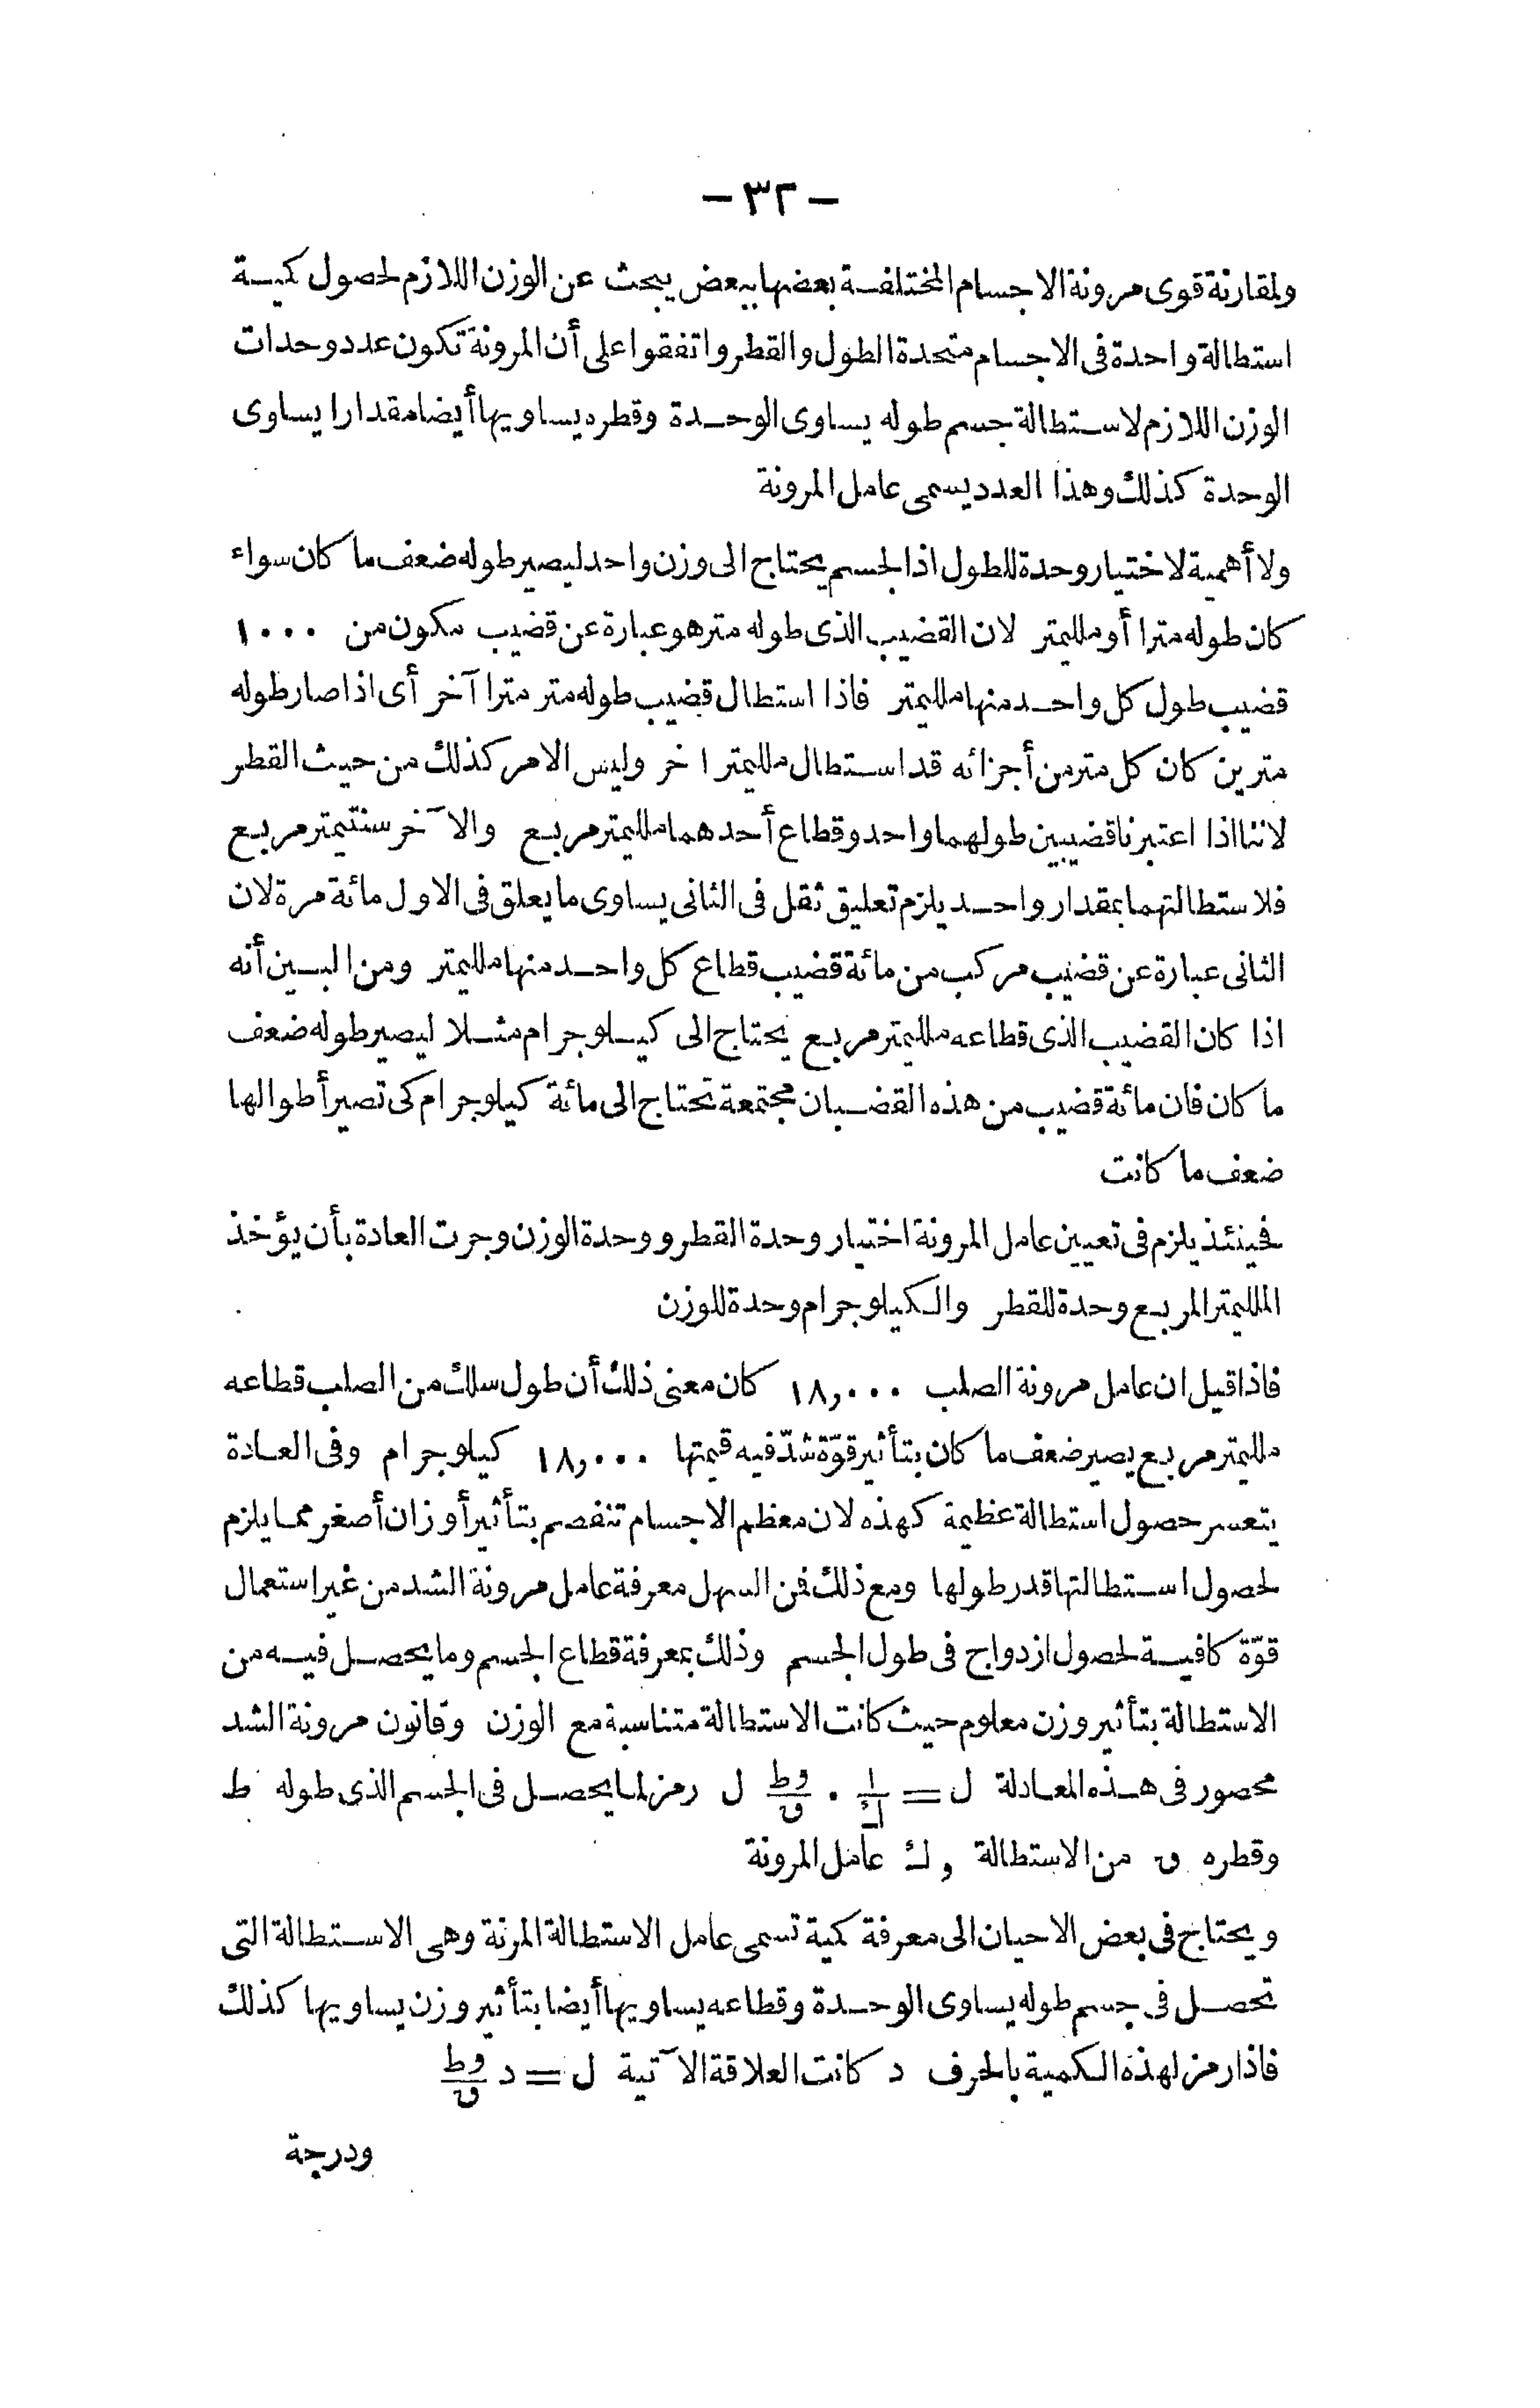 – ٣٢ –
ولمقارنة قوى مرونة الاجسام المختلفة بعضها ببعض يبحث عن الوزن اللازم لحصول كمية
استطالة واحدة فى الاجسام متحدة الطول والقطر واتفقوا على أن المرونة تكون عدد وحدات
الوزن اللازم لاستطالة جسم طوله يساوى الوحدة وقطره يساويها أيضا مقدارا يساوى
الوحدة كذلك وهذا العدد يسمى عامل المرونة
ولا أهمية لاختيار وحدة للطول اذ الجسم يحتاج الى وزن واحد ليصير طوله ضعف ما كان سواء
كان طوله مترا أو ملليمتر لان القضيب الذى طوله متر هو عبارة عن قضيب مكون من ١٠٠٠
قضيب طول كل واحد منها ملليمتر فاذا استطال قضيب طوله متر مترا آخر أى اذا صار طوله
مترين كان كل متر من أجزائه قد استطال ملليمترا خر وليس الامر كذلك من حيث القطر
لاننا اذا اعتبرنا قضيبين طولهما واحد وقطاع أحدهما ملليمتر مربع والآخر سنتيمتر مربع
فلاستطالتهما بمقدار واحد يلزم تعليق ثقل فى الثانى يساوى ما يعلق فى الاول مائة مرة لان
الثانى عبارة عن قضيب مركب من مائة قضيب قطاع كل واحد منها ملليمتر ومن البين أنه
اذا كان القضيب الذى قطاعه ملليمتر مربع يحتاج الى كيلوجرام مثلا ليصير طوله ضعف
ما كان فان مائة قضيب من هذه القضبان مجتمعة تحتاج الى مائة كيلوجرام كى تصير أطوالها
ضعف ما كانت
فحينئذ يلزم فى تعيين عامل المرونة اختيار وحدة القطر ووحدة الوزن وجرت العادة بأن يؤخذ
الملليمتر المربع وحدة للقطر والكيلوجرام وحدة للوزن
فاذا قيل ان عامل مرونة الصلب ١٨,٠٠٠ كان معنى ذلك أن طول سلك من الصلب قطاعه
ملليمتر مربع يصير ضعف ما كان بتأثير قوّة شدّ فيه قيمتها ١٨,٠٠٠ كيلوجرام وفى العادة
يتعسر حصول استطالة عظيمة كهذه لان معظم الاجسام تنفصم بتأثير أوزان أصغر مما يلزم
لحصول استطالتها قدر طولها ومع ذلك فمن السهل معرفة عامل مرونة الشد من غير استعمال
قوّة كافية لحصول ازدواج فى طول الجسم وذلك بمعرفة قطاع الجسم وما يحصل فيه من
الاستطالة بتأثير وزن معلوم حيث كانت الاستطالة متناسبة مع الوزن وقانون مرونة الشد
محصور فى هذه المعادلة ل = ١/ك . وط/ق ل رمز لما يحصل فى الجسم الذى طوله ط
وقطره ق من الاستطالة , ك عامل المرونة
ويحتاج فى بعض الاحيان الى معرفة كمية تسمى عامل الاستطالة المرنة وهى الاستطالة التى
تحصل فى جسم طوله يساوى الوحدة وقطاعه يساويها أيضا بتأثير وزن يساويها كذلك
فاذا رمز لهذه الكمية بالحرف د كانت العلاقة الآتية ل = د وط/ق
ودرجة